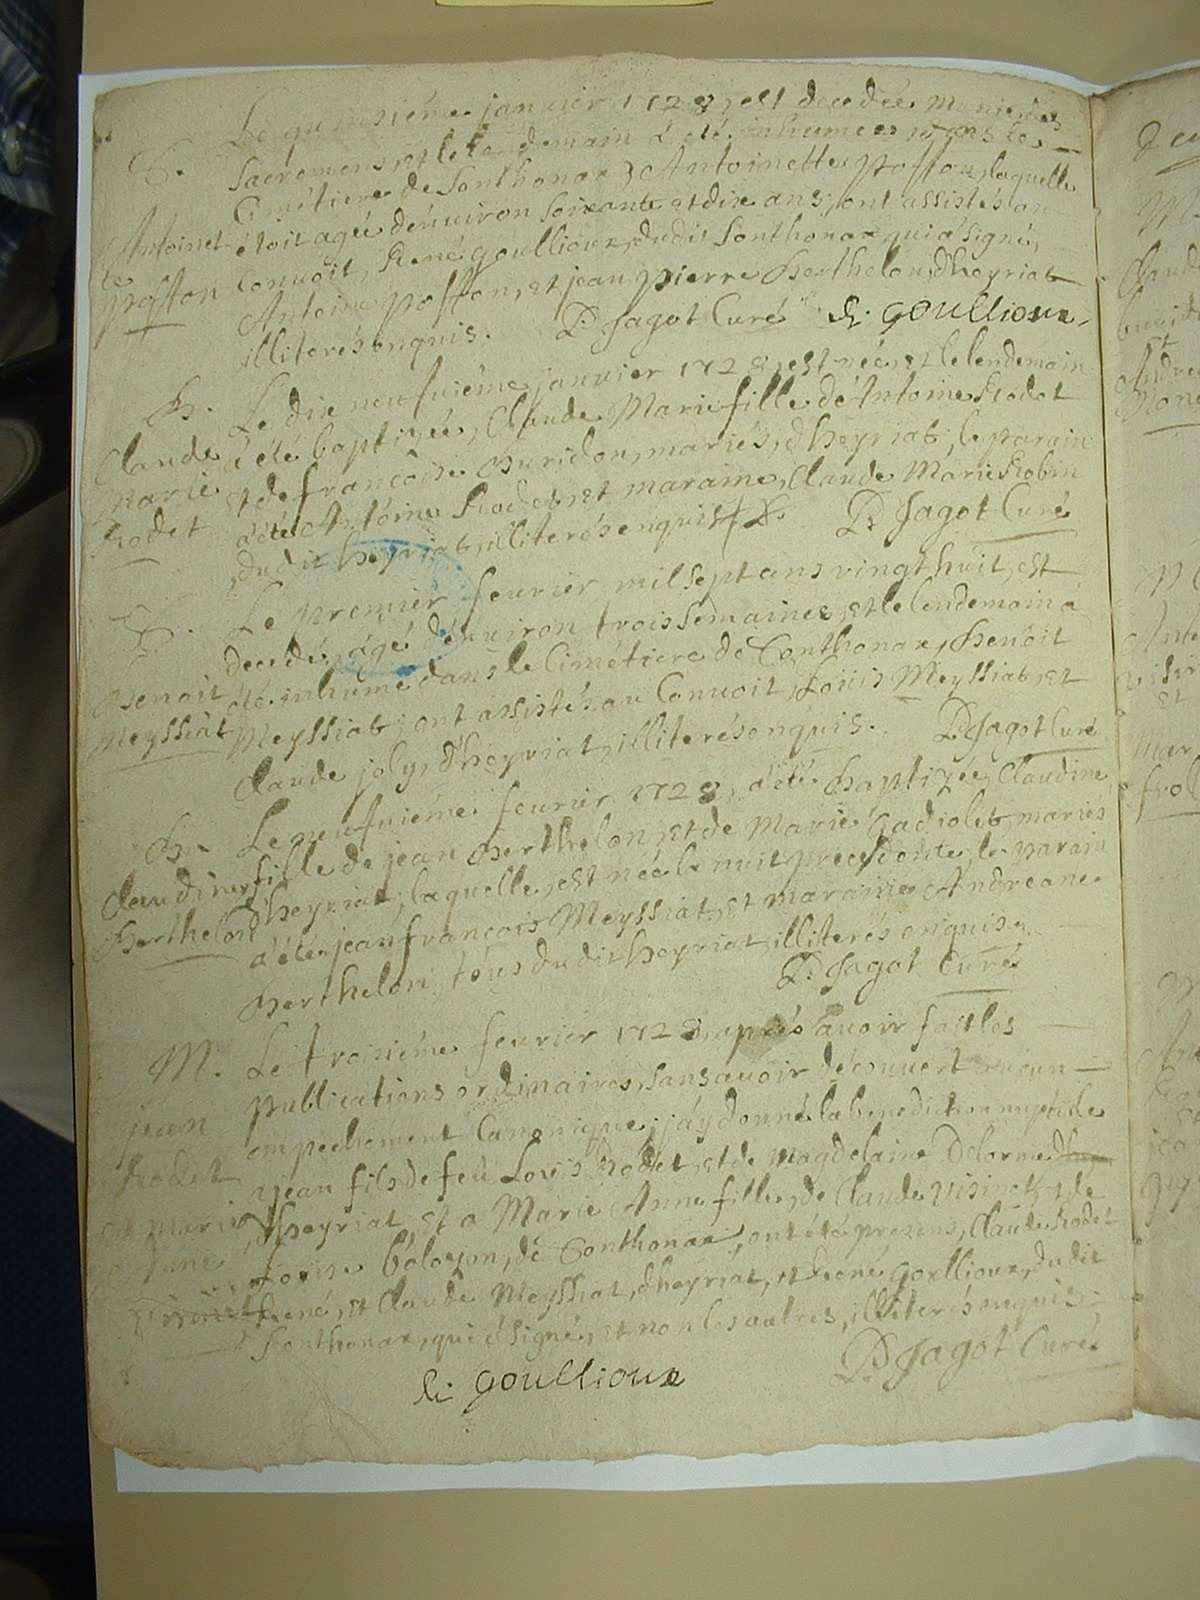 Le quinziéme janvier 1728, est decedée munie des
S. Sacremens, et le lendemain a été inhumée dans le
Cimétiere de Sonthonax, Antoinette Poffon, laquelle
Antoinet étoit agée d'enuiron soixante et dix ans, ont assistés au
te Conuoit, René goullioux, dudit Sonthonax qui a signé,
Poffon Antoine poffon, et jean pierre Berthelon, d'heyriat
illiterés enquis. D. Jagot Curé R. goullioux
B. Le dix neufuiéme januier 1728, est née, et le lendemain
Claude a été baptizée, Claude Marie fille d'Antoine Rodet
Marie et de françoise Buridon, mariés, d'heyriat, le parain
Rodet a été Antoine Rodet, et maraine, Claude Marie Robin
dudit heyriat, illiterés enquis. D. Jagot Curé
S. Le premier feurier mil sept ans vingt huit, est
decedé, agé d'enuiron trois semaines, et le lendemain a
Benoit été inhumé dans le Cimétiere de Sonthonax, Benoit
Meyssiat Meyssiat, ont assistés au Conuoit, Loüis Meyssiat, et
Claude joly, d'heyriat, illiterés enquis. D. Jagot Curé
B. Le neufuiéme feurier 1728, a été baptizée, Claudine
Claudine fille de jean Berthelon, et de Marie Gadiolet, mariés
Berthelon d'heyriat, laquelle, est née la nuit precedente, le parain
a été jean françois Meyssiat, et maraine Andreane
Berthelon, tous dudit heyriat, illiterés enquis.
D. Jagot Curé
M. Le troisiéme feurier 1728, aprés auoir fait les
publications ordinaires, sans auoir découuert aucun
jean empechement Canonique, j'áy donné la benediction nuptiale
Rodet a jean fils de feu Louis Rodet, et de Magdelaine Delorme
et Marie d'heyriat, et a Marie Anne fille de Claude visinet, et de
Anne Louise bóloyon, de Sonthonax, ont été presens, Claude Rodet
visinet René, et Claude Meyssiat, d'heyriat, et René goullioux, dudit
Sonthonax, qui a signé, et non les autres, illiterés enquis
R. goullioux D. Jagot Curé